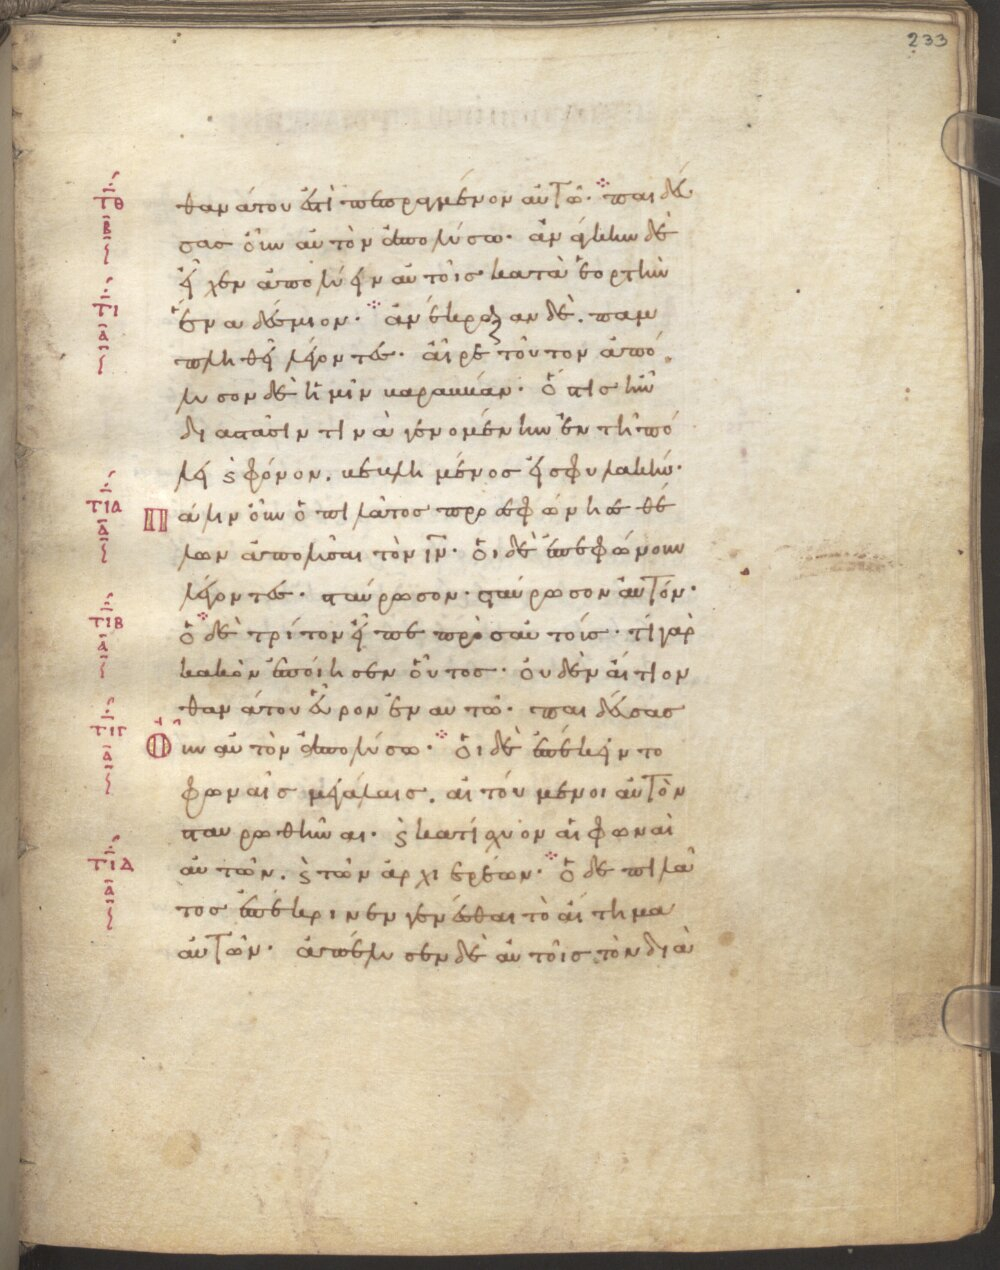 233
θανάτου ἐστὶ πεπραγμένον αὐτῶ· παιδεύ
σας οὖν αὐτὸν ἀπολύσω· ἀνάγκην δὲ
εἶχεν ἀπολύειν αὐτοῖς κατὰ ἑορτὴν
ἕνα δέσμιον· ἀνέκραξαν δὲ. παμ
πληθεὶ λέγοντες· αἶρε τοῦτον ἀπό
λυσον δὲ ἡμῖν βαραββάν· ὅστις ἦν
διὰ στάσιν τινὰ γενομένην ἐν τῆ πό
λει ϗ φόνον. βεβλημένος εἰς φυλακήν·
Πάλιν οὖν ὁ πιλάτος προσεφώνησε θέ
λων ἀπολύσαι τὸν ιν· οἱ δὲ ἐπεφώνουν
λέγοντες· σταύρωσον· σταύρωσον αὐτόν·
ὁ δὲ τρίτον εἶπε πρὸς αὐτούς· τί γὰρ
κακὸν ἐποίησεν οὗτος· οὐδὲν αἴτιον
θανάτου εὗρον ἐν αυτῶ· παιδεύσας
Οὖν αὐτὸν ἀπολύσω· οἱ δὲ ἐπέκειντο
φωναῖς μεγάλαις. αἰτούμενοι αὐτὸν
σταυρωθῆναι· ϗ κατίσχυον αἱ φωναὶ
αὐτῶν. ϗ τῶν ἀρχιερέων· ὁ δὲ πιλᾶ
τος ἐπέκρινεν γενέσθαι τὸ αἴτημα
αὐτῶν· ἀπέλυσεν δὲ αὐτοῖς τὸν διὰ
τθ
β
τι
α
τια
α
τιβ
α
τιγ
α
τιδ
α